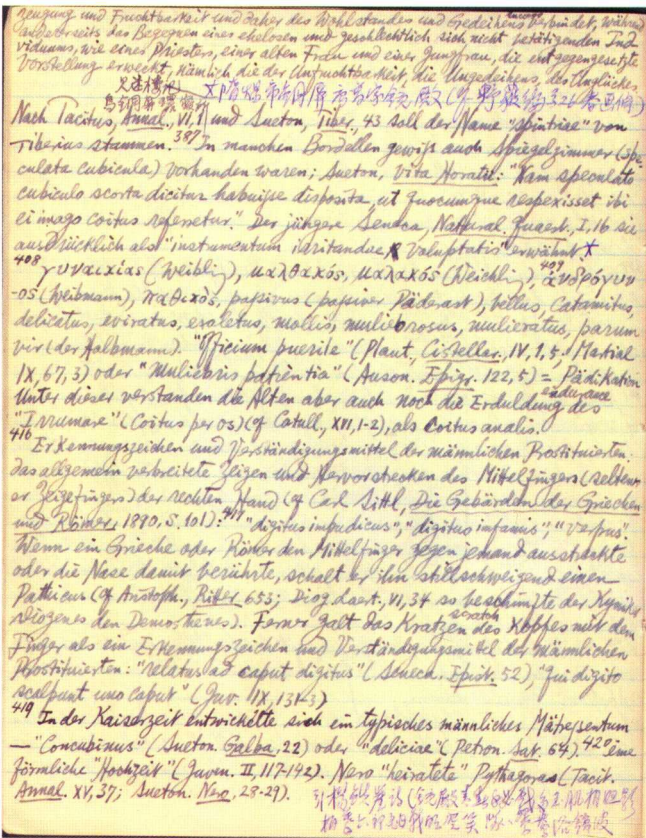 zeugung und Fruchtbarkeit und daher des Wohlstandes und Gedeihens verbindet, während
andererseits das Begegnen eines ehelosen und geschlechtlich sich nicht betätigenden Indi-
viduums, wie eines Priesters, einer alten Frau und einer Jungfrau, die entgegengesetzte
Vorstellung erweckt, nämlich die der Unfruchtbarkeit, des Ungedeihens, des Unglückes.
Nach Tacitus, Annal., VI, 1 und Sueton, Tiber., 43 soll der Name "spintriae" von
Tiberius stammen. 387 In manchen Bordellen gewiß auch Spiegelzimmer (spe-
culata cubicula) vorhanden waren; Sueton, Vita Horatii: "Nam speculato
cubiculo scorta dicitur habuisse disposita, ut quocumque respexisset ibi
ei imago coitus referretur." Der jüngere Seneca, Natural. Quaest., I, 16 sie
ausdrücklich als "instrumentum irritandae voluptatis" erwähnt. X
408 γυναικίας (Weibling), μαλθακός, μαλακός (Weichling), 409 ἀνδρόγυν-
-ος (Weibmann), παθικός, passivus (passiver Päderast), bellus, catamitus,
delicatus, eviratus, exoletus, mollis, mulierosus, mulieratus, parum
vir (der Halbmann). "Officium puerile" (Plaut., Cistellar. IV, 1, 5; Martial
IX, 67, 3) oder "muliebris patientia" (Auson. Epigr. 122, 5) = Pädikation
Unter dieser verstanden die Alten aber auch noch die Erduldung des
endurance
"Irrumare" (Coitus per os) (cf Catull., XVI, 1-2), als coitus analis.
416 Erkennungszeichen und Verständigungsmittel der männlichen Prostituierten:
das allgemein verbreitete Zeigen und Hervorstrecken des Mittelfingers (seltener
er Zeigefingers) der rechten Hand (cf Carl Sittl, Die Gebärden der Griechen
und Römer, 1890, S. 101): 417 "digitus impudicus", "digitus infamis", "verpus".
Wenn ein Grieche oder Römer den Mittelfinger gegen jemand ausstreckte
oder die Nase damit berührte, schalt er ihn stillschweigend einen
Pathicus (cf Aristoph., Ritter 653; Diog. Laert., VI, 34 so beschimpfte der Kyniker
Diogenes den Demosthenes). Ferner galt das Kratzen des Kopfes mit dem
scratch
Finger als ein Erkennungszeichen und Verständigungsmittel der männlichen
Prostituierten: "relatus ad caput digitus" (Seneca. Epist. 52), "qui digito
scalpunt uno caput" (Juv. IX, 131-3)
419 In der Kaiserzeit entwickelte sich ein typisches männliches Mätressentum
— "Concubinus" (Sueton. Galba, 22) oder "deliciae" (Petron. Sat. 64). 420 eine
förmliche "Hochzeit" (Juven. II, 117-142). Nero "heiratete" Pythagoras (Tacit.
Annal. XV, 37; Sueton. Nero, 28-29).